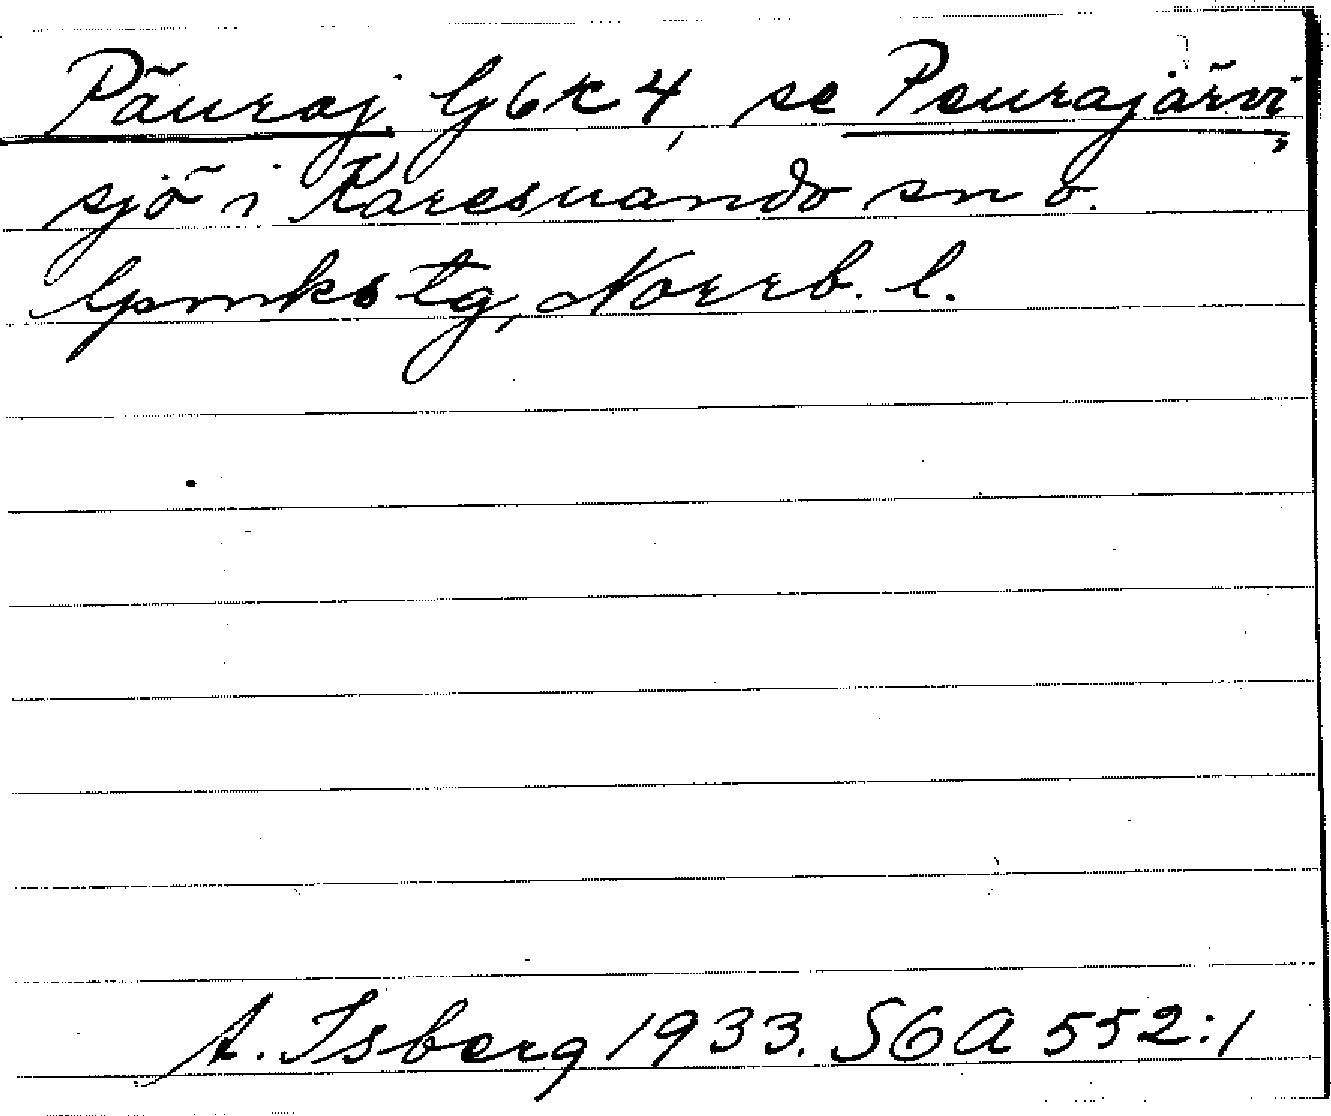 Päuraj G6k4, se Peurajärvi,
sjö i Karesuando sn o.
lpmks tg, Norrb. l.
A. Isberg 1933. SGA 552:1